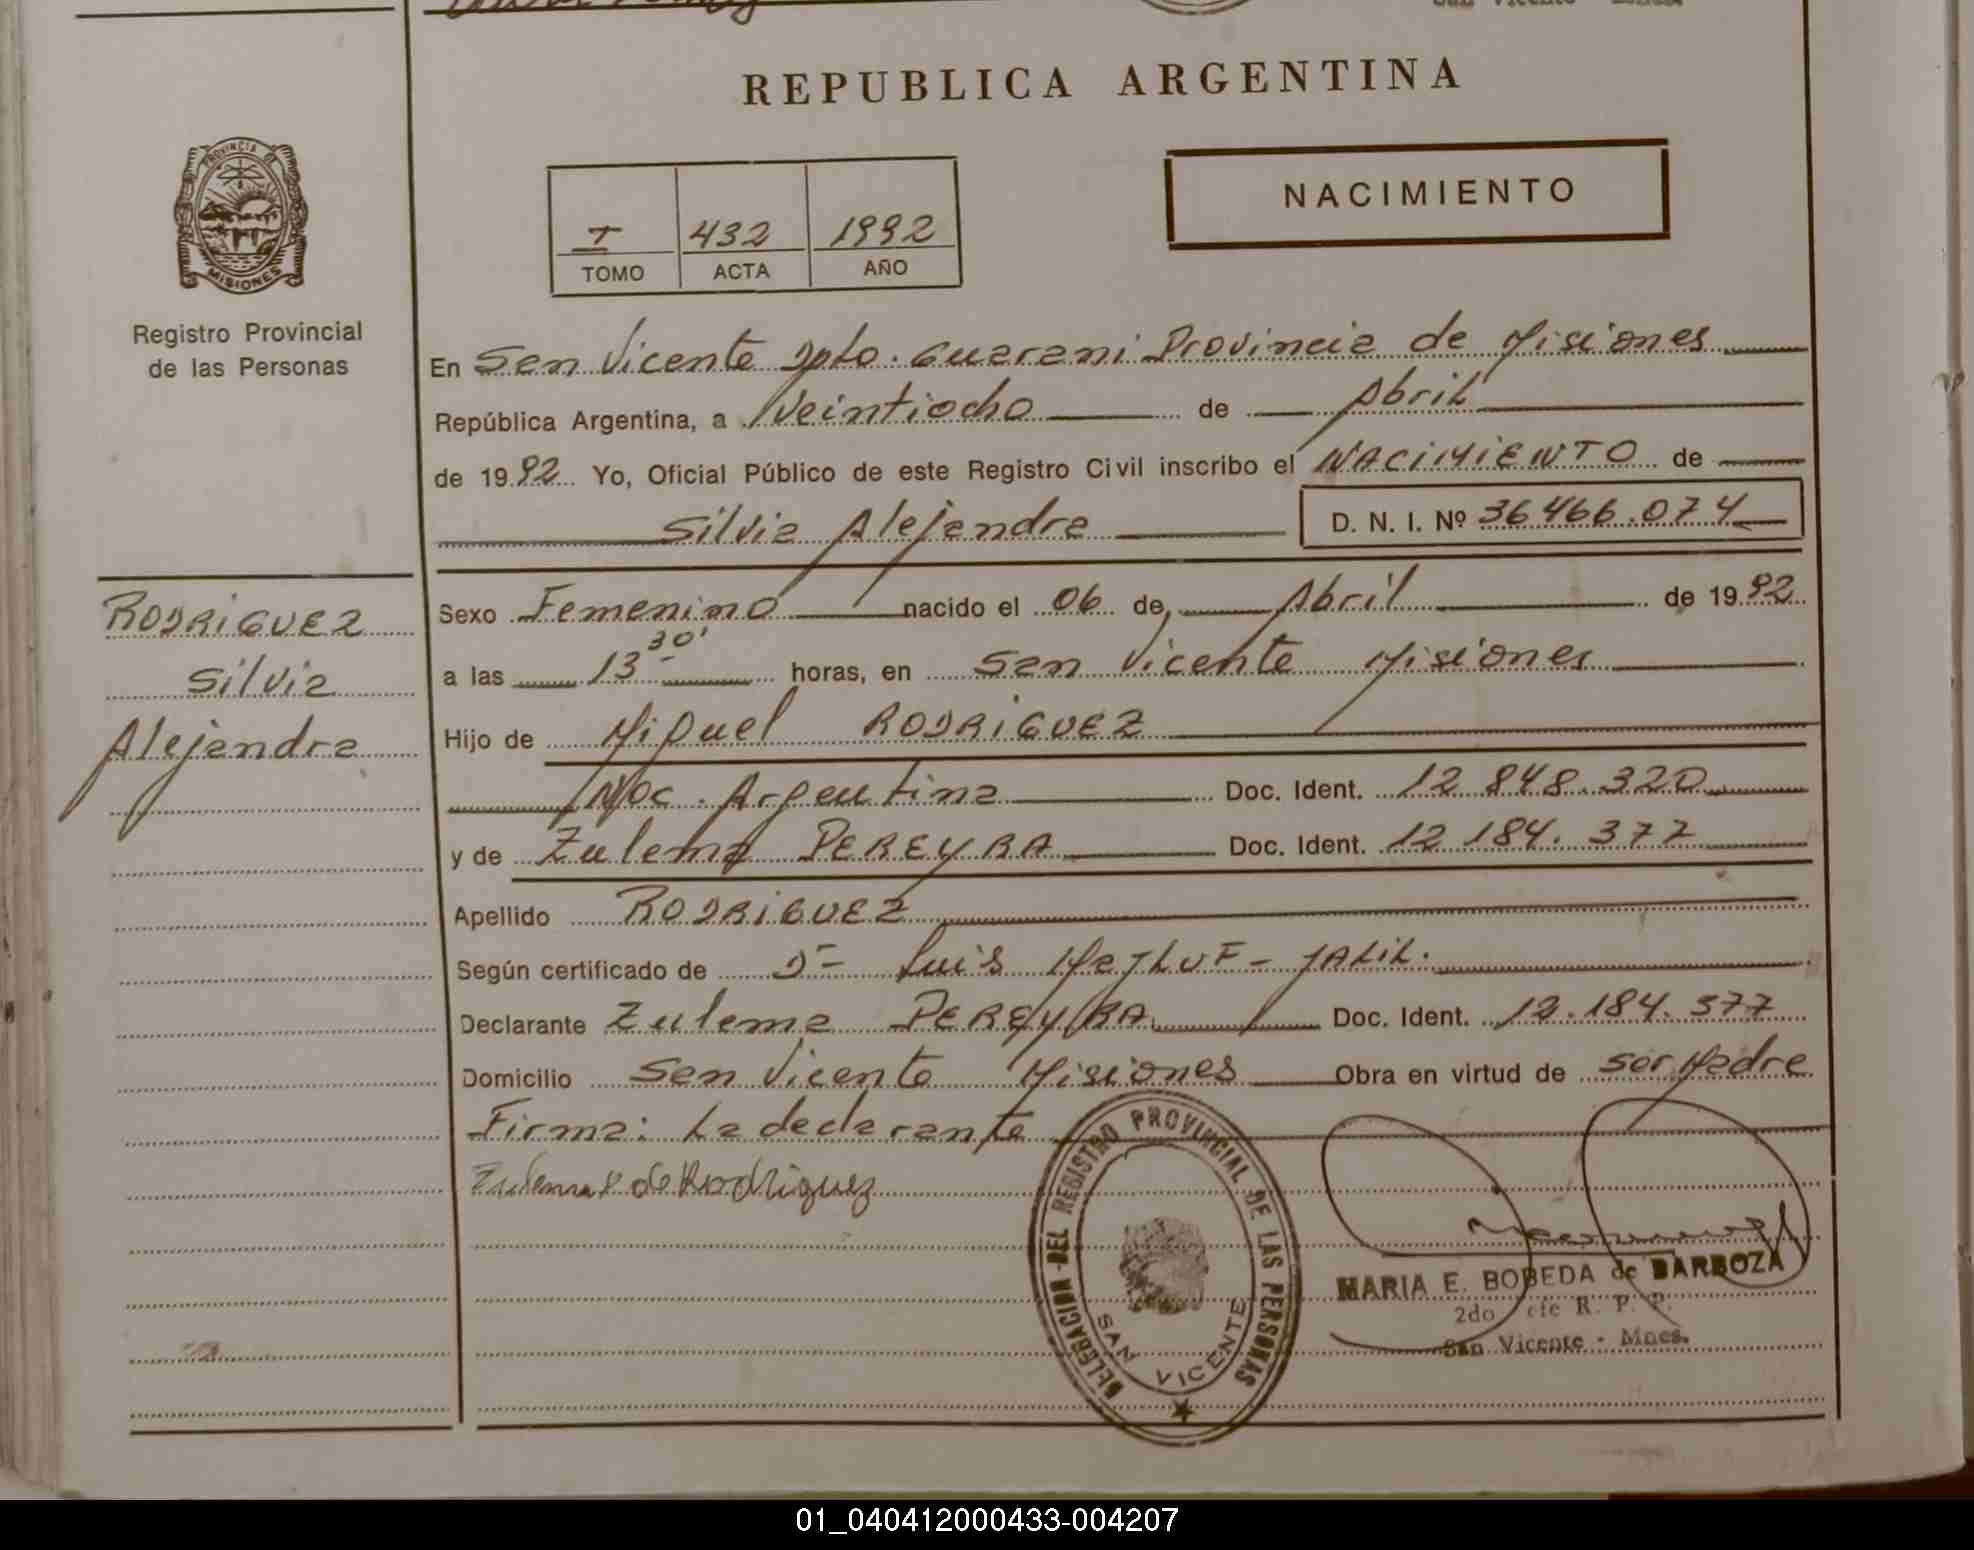 San Vicente - Mnes.
REPUBLICA ARGENTINA
NACIMIENTO
I 432 1992
TOMO ACTA AÑO
PROVINCIA DE
MISIONES
Registro Provincial
de las Personas
En San Vicente Dpto. Guarani Provincia de Misiones
República Argentina, a Veintiocho de Abril
de 1992 Yo, Oficial Público de este Registro Civil inscribo el NACIMIENTO de
Silvia Alejandra D. N. I. Nº 36.466.074
RODRIGUEZ
Silvia
Alejandra
Sexo Femenino nacido el 06 de Abril de 1992
a las 13 30' horas, en San Vicente Misiones
Hijo de Miguel RODRIGUEZ
Nac. Argentina Doc. Ident. 12.848.320
y de Zulema PEREYRA Doc. Ident. 12.184.377
Apellido RODRIGUEZ
Según certificado de Dr Luis JALIL.
Declarante Zulema PEREYRA Doc. Ident. 12.184.377
Domicilio San Vicente Misiones Obra en virtud de ser Madre
Firma: La declarante
Zulema P de Rodriguez
DELEGACION DEL REGISTRO PROVINCIAL DE LAS PERSONAS
SAN VICENTE
MARIA E. BOBEDA de BARBOZA
2do R. P. P.
San Vicente - Mnes.
01_040412000433-004207